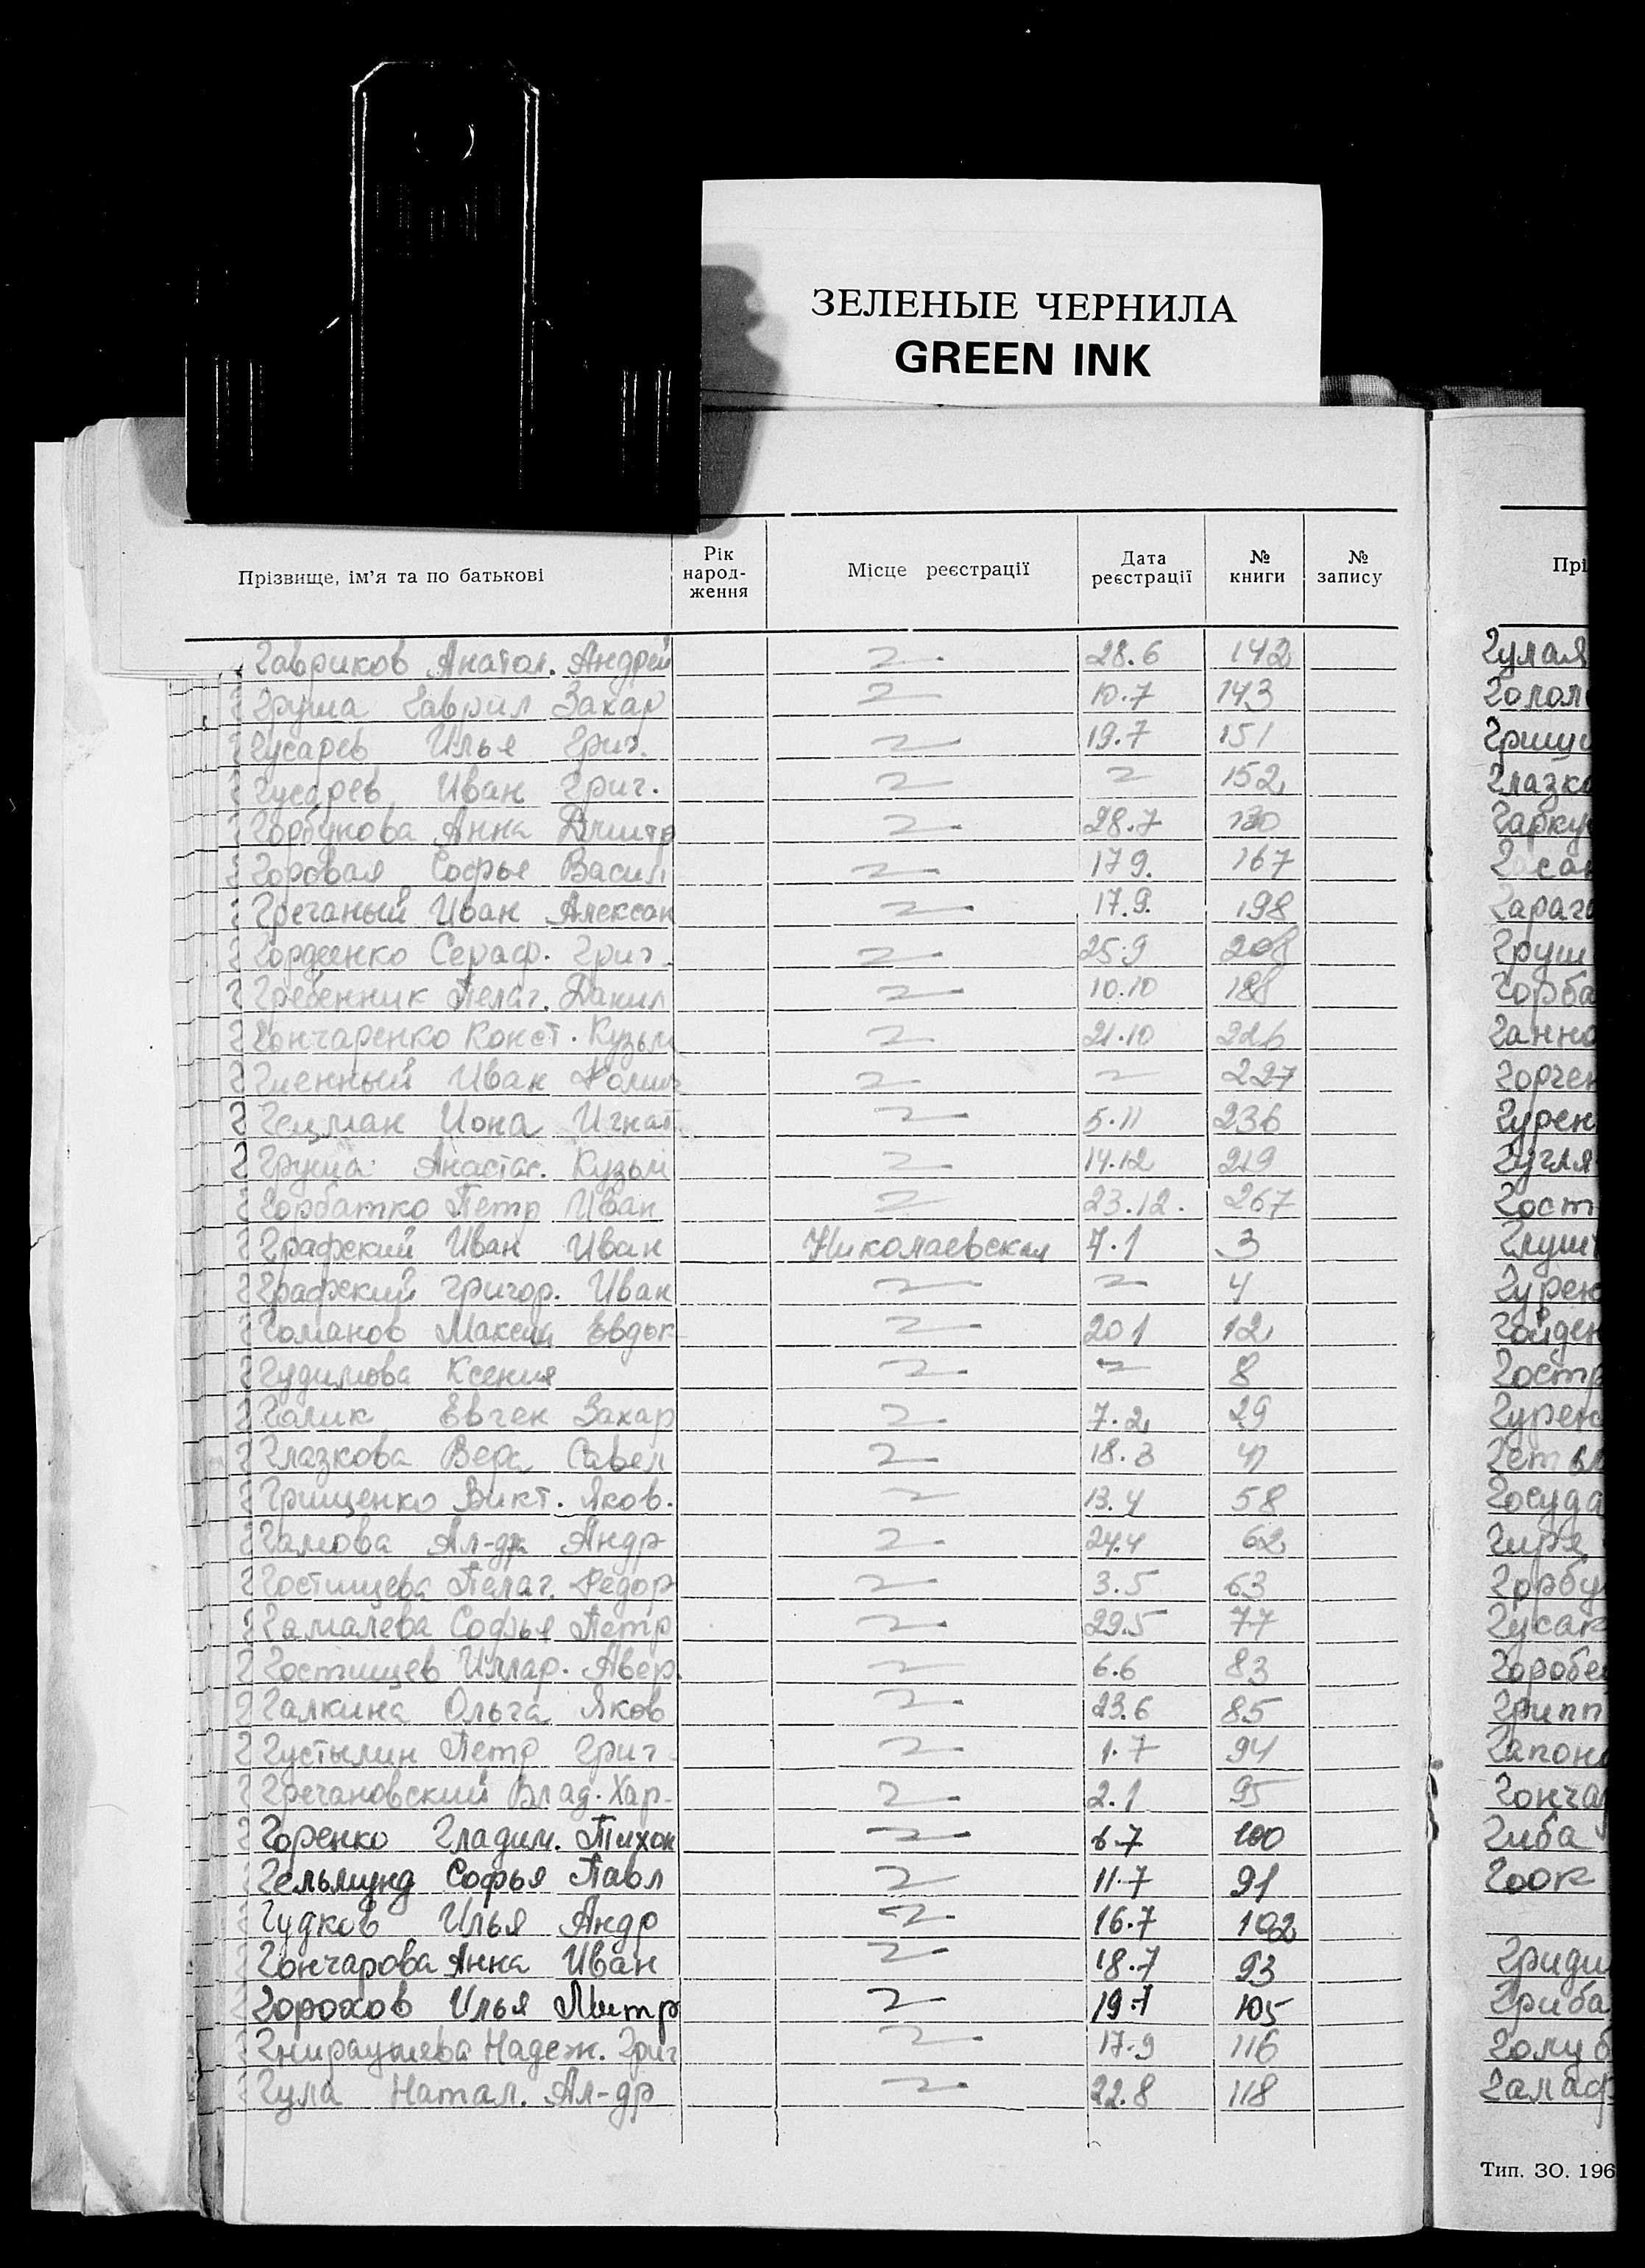 ЗЕЛЕНЫЕ ЧЕРНИЛА
GREEN INK
Прізвище, ім'я та по батькові Рік народ- ження Місце реєстрації Дата реєстрації № книги № запису Прі
Гавриков Анатол. Андрей 28.6 142
Груша Гаврил Захар 10.7 143
Гусарев Илья Григ. 19.7 151
Гусарев Иван Григ. 152
Горбунова Анна Дмитр 28.7 130
Горовая Софья Васил 17 9. 167
Гречаный Иван Алексан 17.9. 198
Гордеенко Сераф. Григ. 25.9 208
Гребенник Пелаг. Данил 10.10 188
Гончаренко Конст. Кузьм 21.10 226
Иван 227
Гецман Иона Игнат. 5.11 236
Груца Анастас. Кузьм 14.12 219
Горбатко Петр Иван 23.12. 267
Графский Иван Иван Николаевская 7.1 3
Графский Григор. Иван 4
Гоманов Максим Евдок 20 1 12
Гудимова Ксения 8
Голик Евген Захар 7.2 29
Глазкова Вера Савел 18.3 41
Грищенко Викт. Яков. 13.4 58
Гамова Ал-др Андр 24.4 62
Гостищева Пелаг. Федор 3.5 63
Гамалева Софья Петр 29.5 77
Гостищев Иллар. Авер. 6.6 83
Галкина Ольга Яков 23.6 85
Густылин Петр Григ 1.7 94
Гречановский Влад. Хар. 2.1 95
Горенко Гладим. Тихон 6.7 100
Гельмунд Софья Павл 11.7 91
Гудков Илья Андр 16.7 102
Гончарова Анна Иван 18.7 93
Горохов Илья Митр 19.7 105
Надеж. Григ 17.9 116
Гула Натал. Ал-др 22.8 118
Гулая
Гололо
Грищи
Глазко
Гаркун
Гасан
Гараго
Груш
Горба
Ганно
Горчен
Гурен
Гугля
Гост
Глуш
Гурен
Гайден
Гостр
Гурен
Гетьм
Госуда
Гиря
Горбу
Гусак
Горобе
Грипп
Гапоно
Гонча
Гиба
Гоок
Гриди
Гриба
Голуб
Галаф
Тип. ЗО. 196